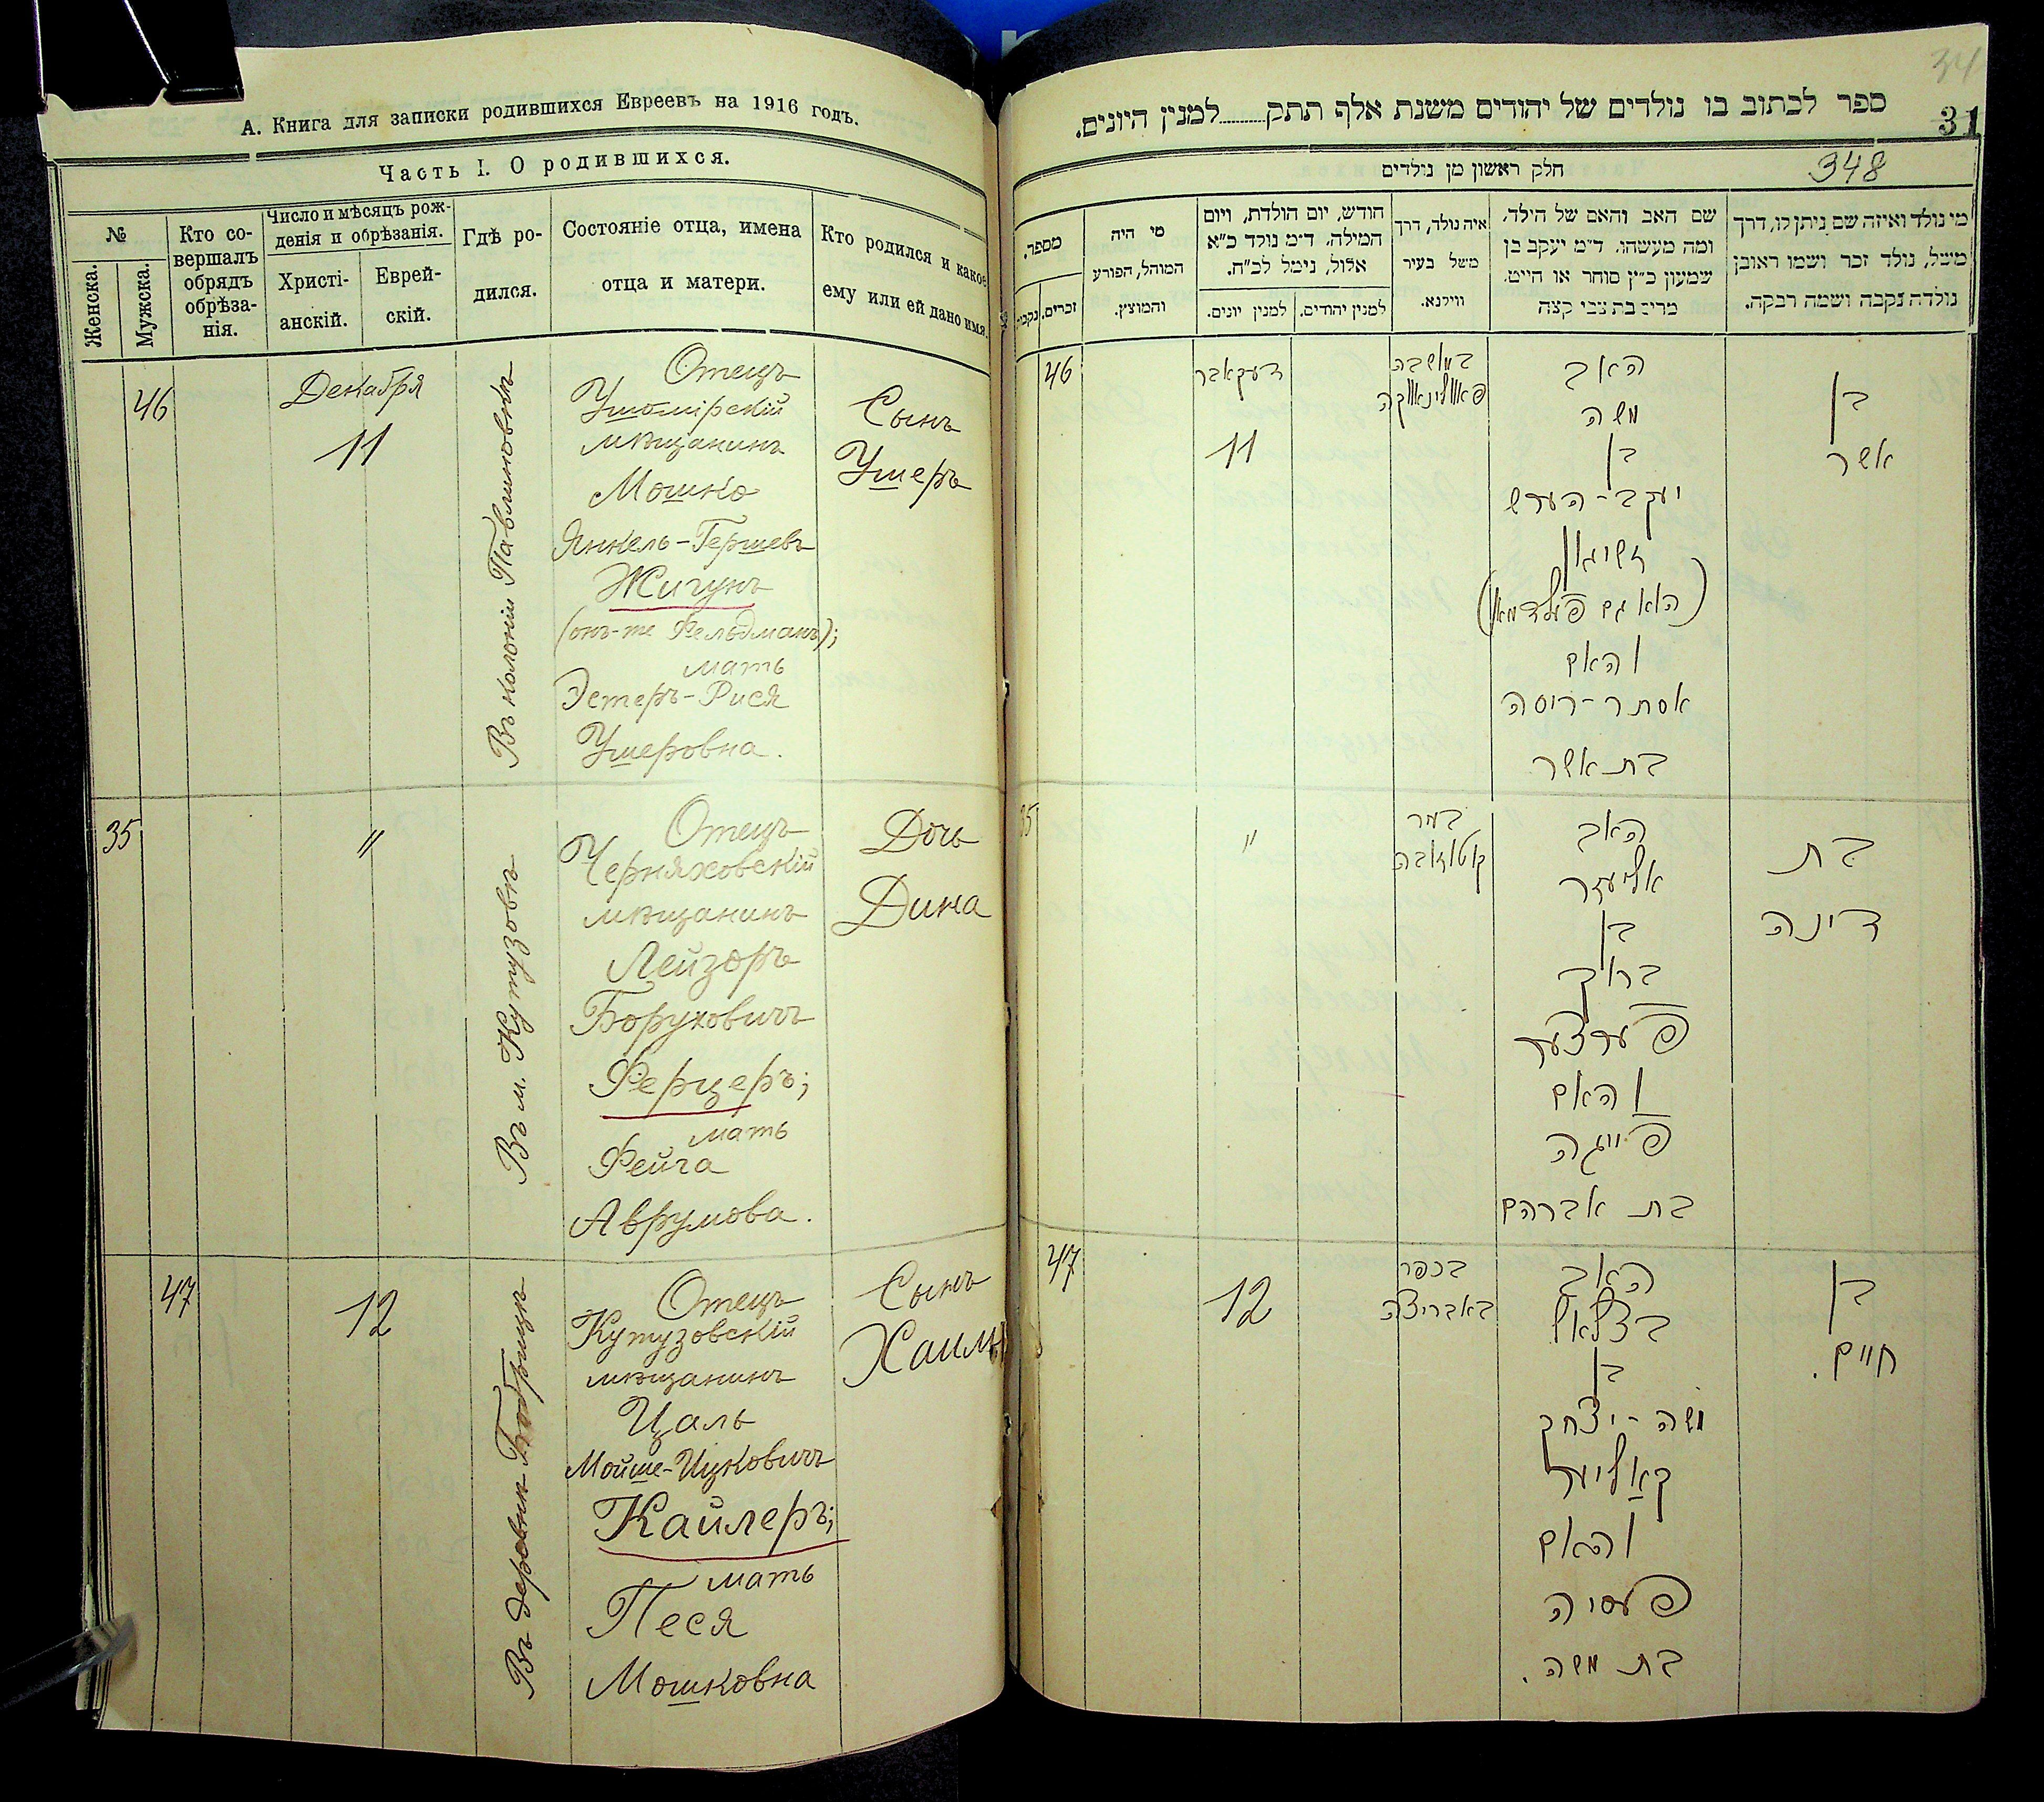 А. Книга для записки родившихся Евреевъ на 1916 годъ.
Часть I. О родившихся.
№
Женска.
Мужска.
Кто со-
вершалъ
обрядъ
обрѣза-
нія.
Число и мѣсяцъ рож-
денія и обрѣзанія.
Христі-
анскій.
Еврей-
скій.
Гдѣ ро-
дился.
Состояніе отца, имена
отца и матери.
Кто родился и какое
ему или ей дано имя.
46
Декабря
11
Въ колоніи Павлиновкѣ
Отецъ
Ушомірскій
мѣщанинъ
Мошко
Янкель-Гершевъ
Жигунъ
(онъ-же Фельдманъ);
мать
Эстеръ-Рися
Ушеровна.
Сынъ
Ушеръ
35
"
Въ м. Кутузовѣ
Отецъ
Черняховскій
мѣщанинъ
Лейзоръ
Боруховичъ
Ферцеръ;
мать
Фейга
Аврумова.
Дочь
Дина
47
12
Въ деревнѣ Бобрицѣ
Отецъ
Кутузовскій
мѣщанинъ
Цаль
Мойше-Ицковичъ
Кайлеръ;
мать
Песя
Мошковна
Сынъ
Хаимъ
34
31
ספר לכתוב בו נולדים של יהודים משנת אלף תתק........למנין היונים.
חלק ראשון מן נולדים
348
מספר.
זכרים.
נקבי.
מי היה
המוהל, הפורע
והמוצץ.
חודש, יום הולדת, ויום
המילה. ד״מ נולד כ״א
אלול, נימל לכ״ח.
למנין יונים.
למנין יהודים.
איה נולד, דרך
משל בעיר
ווילנא.
שם האב והאם של הילד.
ומה מעשהו. ד״מ יעקב בן
שמעון כ״ץ סוחר או חייט.
מרים בת צבי קצה
מי נולד ואיזה שם ניתן לו, דרך
משל, נולד זכר ושמו ראובן
נולדה נקבה ושמה רבקה.
46
דעקאבר
11
במושבה
פאוולינאווקה
האב
משה
בן
יעקב-הערש
זשיגון
(הוא גם פעלדמאן)
והאם
אסתר-ריסה
בת אשר
בן
אשר
35
"
בעיר
קוטוזובה
האב
אליעזר
בן
ברוך
פערצער
והאם
פייגה
בת אברהם
בת
דינה
47
12
בכפר
באבריצה
האב
בצלאל
בן
משה-יצחק
קאליער
והאם
פעסיה
בת משה.
בן
חיים.